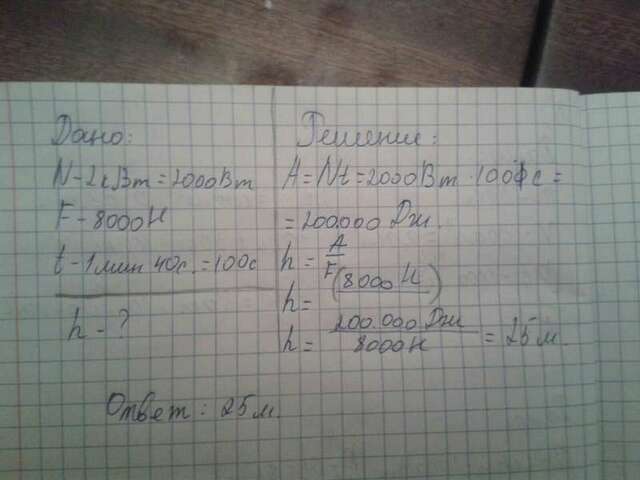 Дано:
N - 2кВт = 2000Вт
F - 8000Н
t - 1 мин 40с. = 100с
h - ?
Решение:
A = Nt = 2000Вт · 100 с =
= 200.000 Дж.
h = A/F
h = (8000 Н)
h = 200.000 Дж / 8000Н = 25 м.
Ответ: 25 м.